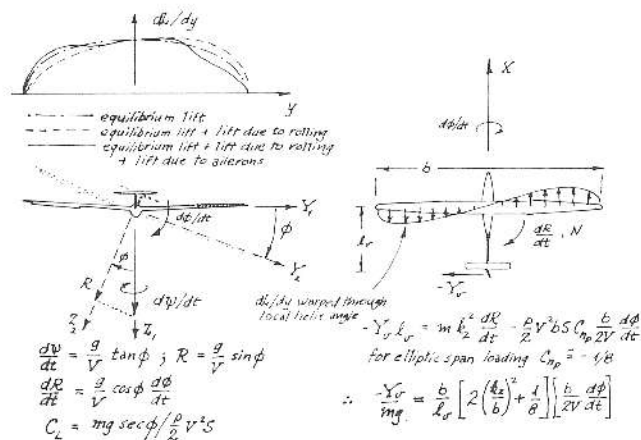 dL/dy
y
equilibrium lift
equilibrium lift + lift due to rolling
equilibrium lift + lift due to rolling
+ lift due to ailerons
dϕ/dt
Y₁
ϕ
Y₂
ϕ
R
dψ/dt
Z₂
Z₁
dψ/dt = g/V tanϕ ; R = g/V sinϕ
dR/dt = g/V cosϕ dϕ/dt
C_L = mg secϕ / ρ/2 V²S
X
dϕ/dt
b
l_v
dR/dt , N
-Y_v
warped through
local helix angle
-Y_v l_v = m k_z² dR/dt - ρ/2 V²bS C_np b/2V dϕ/dt
for elliptic span loading C_np = -1/8
∴ -Y_v/mg = b/l_v [2(k_z/b)² + 1/8][b/2V dϕ/dt]